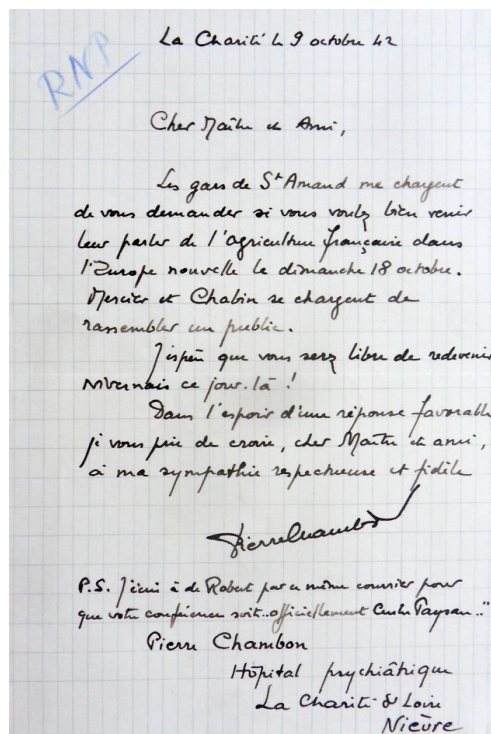 La Charité le 9 octobre 42
RNP
Cher Maître et Ami,
Les gars de St Amand me chargent
de vous demander si vous voulez bien venir
leur parler de l'agriculture française dans
l'Europe nouvelle le dimanche 18 octobre.
Mercier et Chabin se chargent de
rassembler un public.
J'espère que vous serez libre de redevenir
Nivernais ce jour-là !
Dans l'espoir d'une réponse favorable
je vous prie de croire, cher Maître et ami,
à ma sympathie respectueuse et fidèle
PierreChambon
P.S. J'écris à de Robert par ce même courrier pour
que votre conférence soit..officiellement Paysan.."
Pierre Chambon
Hôpital psychiâtrique
La Charité s/ Loire
Nièvre